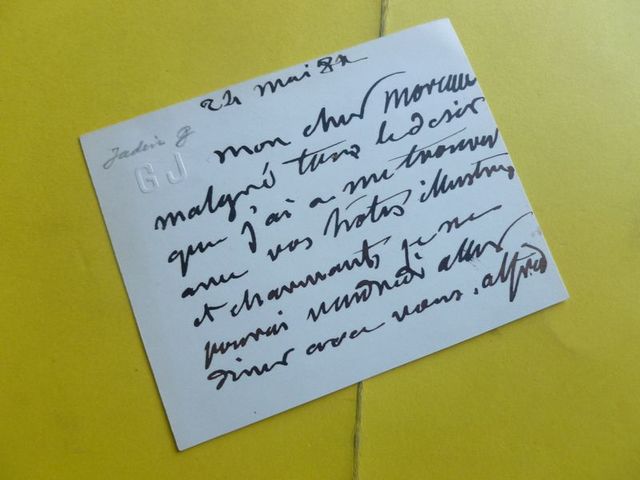 24 mai 82
Jadin G
GJ
mon cher moreau
malgré tous le desir
que j'ai a me trouver
avec vos hôtes illustres
et charmants, je ne
pourai vendredi aller
diner avec vous. alfred